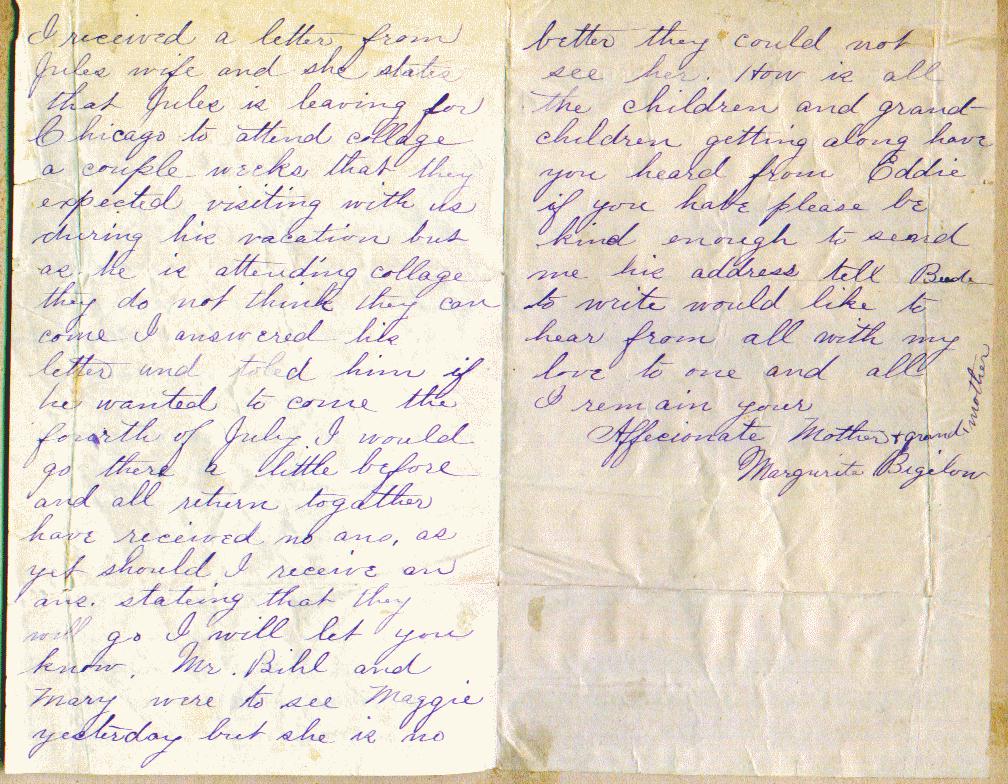 I received a letter from
Jules wife and she states
that Jules is leaving for
Chicago to attend collage
a couple weeks that they
expected visiting with us
during his vacation but
as he is attending collage
they do not think they can
come I answered his
letter und toled him if
he wanted to come the
fourth of July, I would
go there a little before
and all return togather
have received no ans, as
yet should I receive an
ans. stateing that they
will go I will let you
know. Mr. Bihl and
Mary were to see Maggie
yesterday but she is no
better they could not
see her. How is all
the children and grand
children getting along have
you heard from Eddie
if you have please be
kind enough to send
me his address tell
to write would like to
hear from all with my
love to one and all
I remain your
Affecionate Mother + grand-mother
Margurite Bigelow